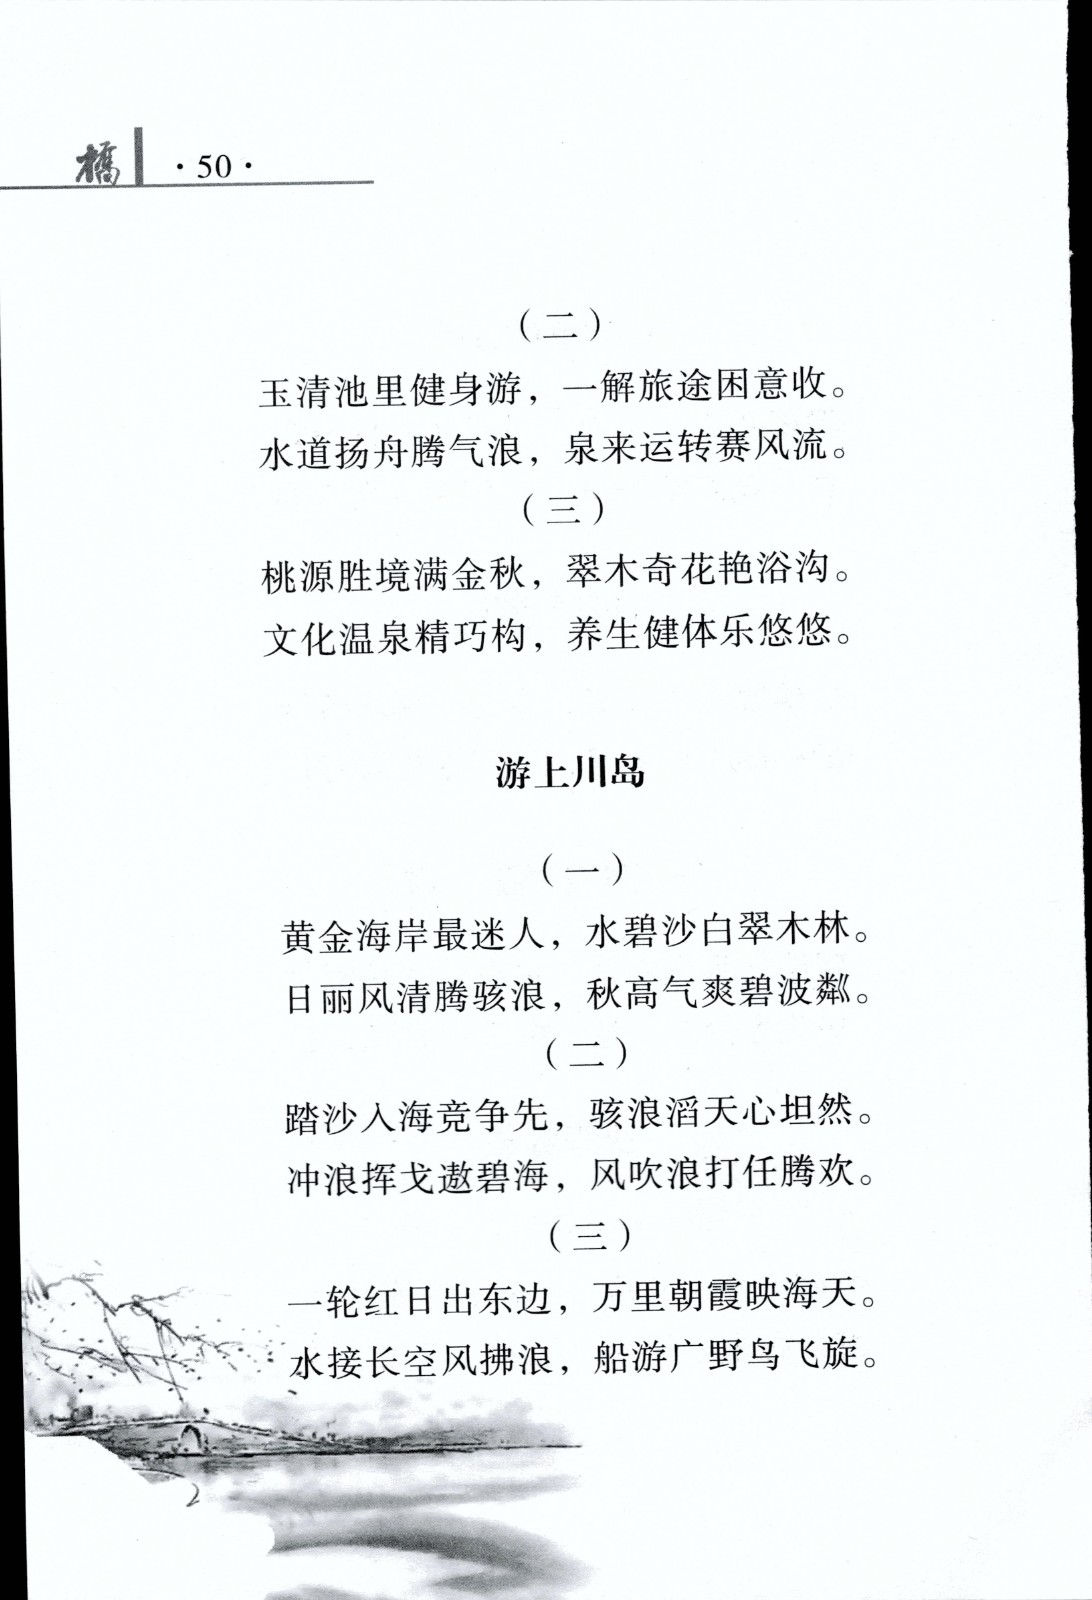 橋 ·50·
（二）
玉清池里健身游，一解旅途困意收。
水道扬舟腾气浪，泉来运转赛风流。
（三）
桃源胜境满金秋，翠木奇花艳浴沟。
文化温泉精巧构，养生健体乐悠悠。
游上川岛
（一）
黄金海岸最迷人，水碧沙白翠木林。
日丽风清腾骇浪，秋高气爽碧波粼。
（二）
踏沙入海竞争先，骇浪滔天心坦然。
冲浪挥戈遨碧海，风吹浪打任腾欢。
（三）
一轮红日出东边，万里朝霞映海天。
水接长空风拂浪，船游广野鸟飞旋。